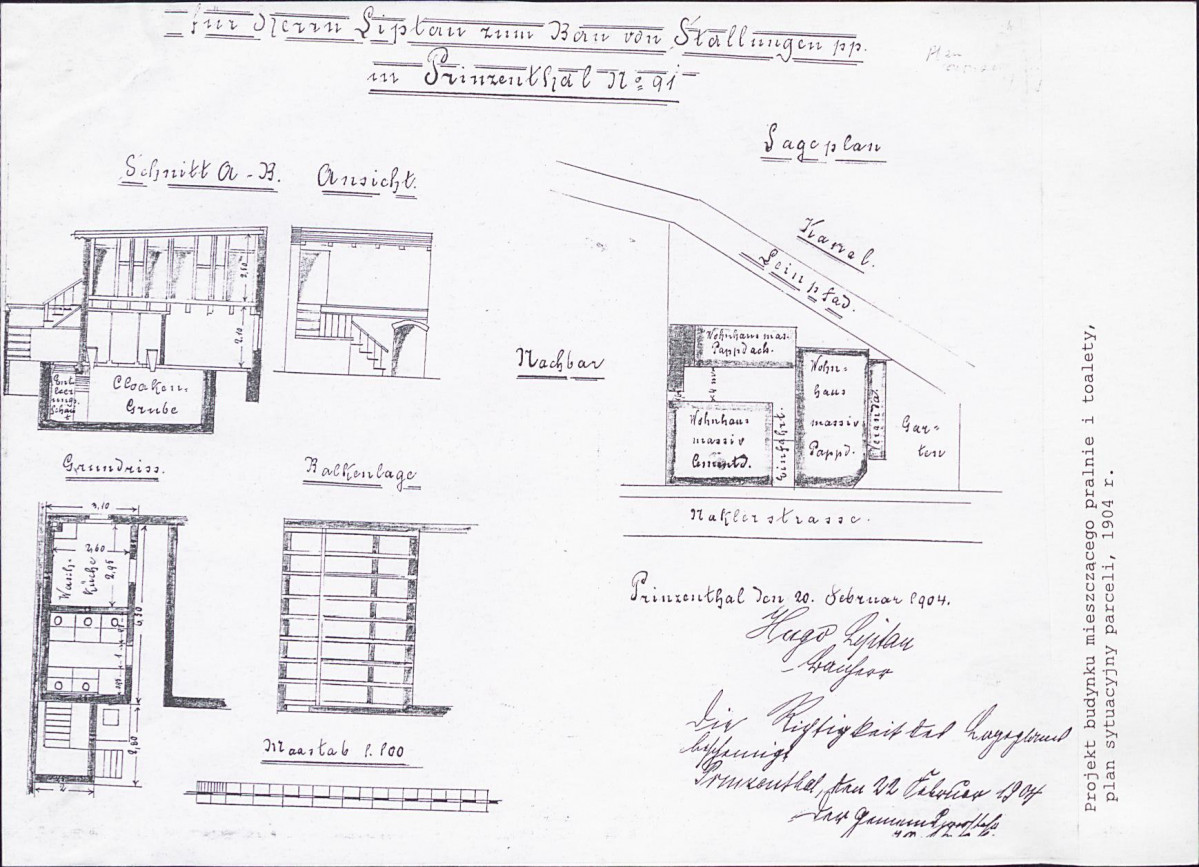 für Herrn Liptau zum Bau von Stallungen pp.
in Prinzenthal No 91
Plan
Lageplan
Schnitt A-B. Ansicht.
Kanal.
Leinpfad.
2,50
2,10
Nachbar
Wohnhaus mas.
Pappdach.
Wohn-
haus
massiv
Pappd.
Veranda.
Gar-
ten
Wohnhaus
massiv
Cementd.
Einfahrt.
Cloaken-
Grube
Ent
leer
ungs
Schach
t
Grundriss.
Balkenlage
Naklerstrasse.
3,10
2,60
2,95
Wasch-
Küche
6,30
2,60
Maastab 1:100
Prinzenthal den 20. Februar 1904.
Hugo Liptau
Bauherr
Die Richtigkeit des Lageplans
bescheinigt
Prinzenthal, den 22 Februar 1904
Der Gemeindevorsteher
Projekt budynku mieszczącego pralnie i toalety,
plan sytuacyjny parceli, 1904 r.